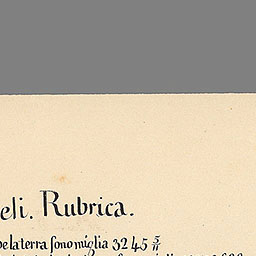 eli. Rubrica.
be la terra ſono miglia 3245 5/11